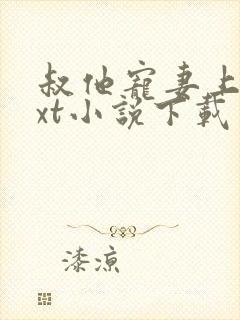 叔他寵妻上
xt小說下載
漆涼